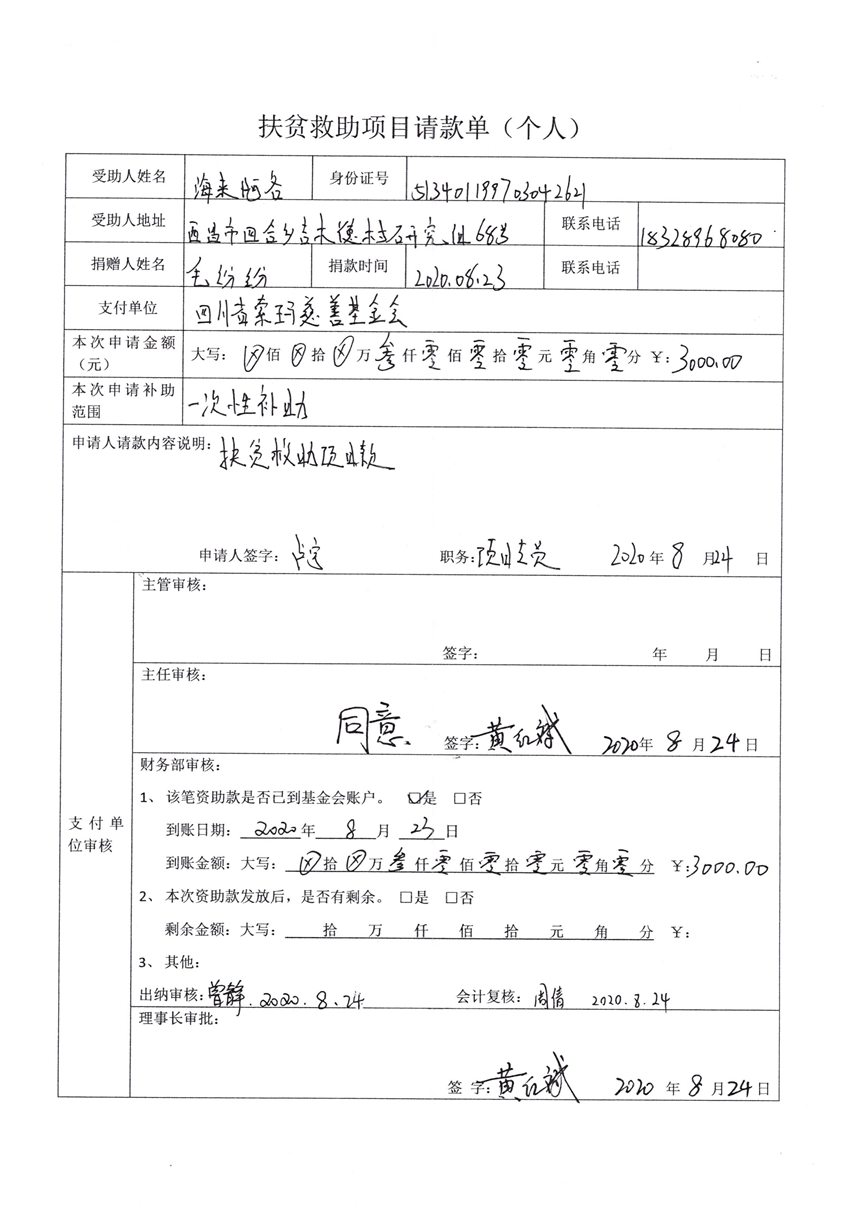 扶贫救助项目请款单（个人）
受助人姓名 海来阿各 身份证号 513401199703042621
受助人地址 西昌市四合乡吉木德村石开究组68号 联系电话 18328968080
捐赠人姓名 毛纷纷 捐款时间 2020.08.23 联系电话
支付单位 四川省索玛慈善基金会
本次申请金额（元） 大写： ⊗佰⊗拾⊗万叁仟零佰零拾零元零角零分 ￥：3000.00
本次申请补助范围 一次性补助
申请人请款内容说明：扶贫救助项目款
申请人签字： 职务：项目专员 2020年8月24日
支付单位审核
主管审核：
签字： 年 月 日
主任审核：
同意.
签字：黄红斌 2020年8月24日
财务部审核：
1、 该笔资助款是否已到基金会账户。 ☑是 □否
到账日期： 2020年 8 月 23 日
到账金额：大写： ⊗拾⊗万叁仟零佰零拾零元零角零分 ￥：3000.00
2、 本次资助款发放后，是否有剩余。 □是 □否
剩余金额：大写： 拾 万 仟 佰 拾 元 角 分 ￥：
3、 其他：
出纳审核：曾静.2020.8.24 会计复核： 周倩 2020.8.24
理事长审批：
签 字：黄红斌 2020年8月24日